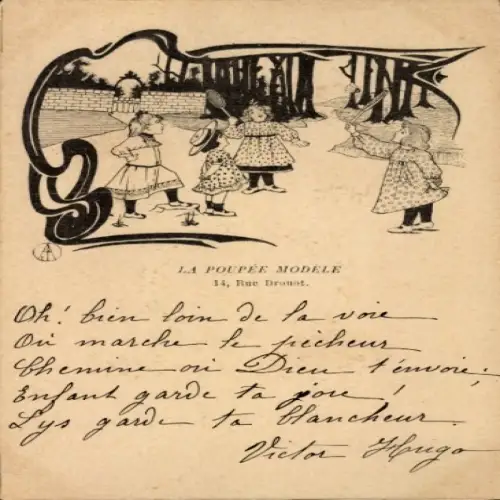 LA POUPÉE MODÈLE
14, Rue Drouot.
Oh! bien loin de la voie
Où marche le pécheur
Chemine où Dieu t'envoie;
Enfant garde ta joie!
Lys garde ta blancheur.
Victor Hugo